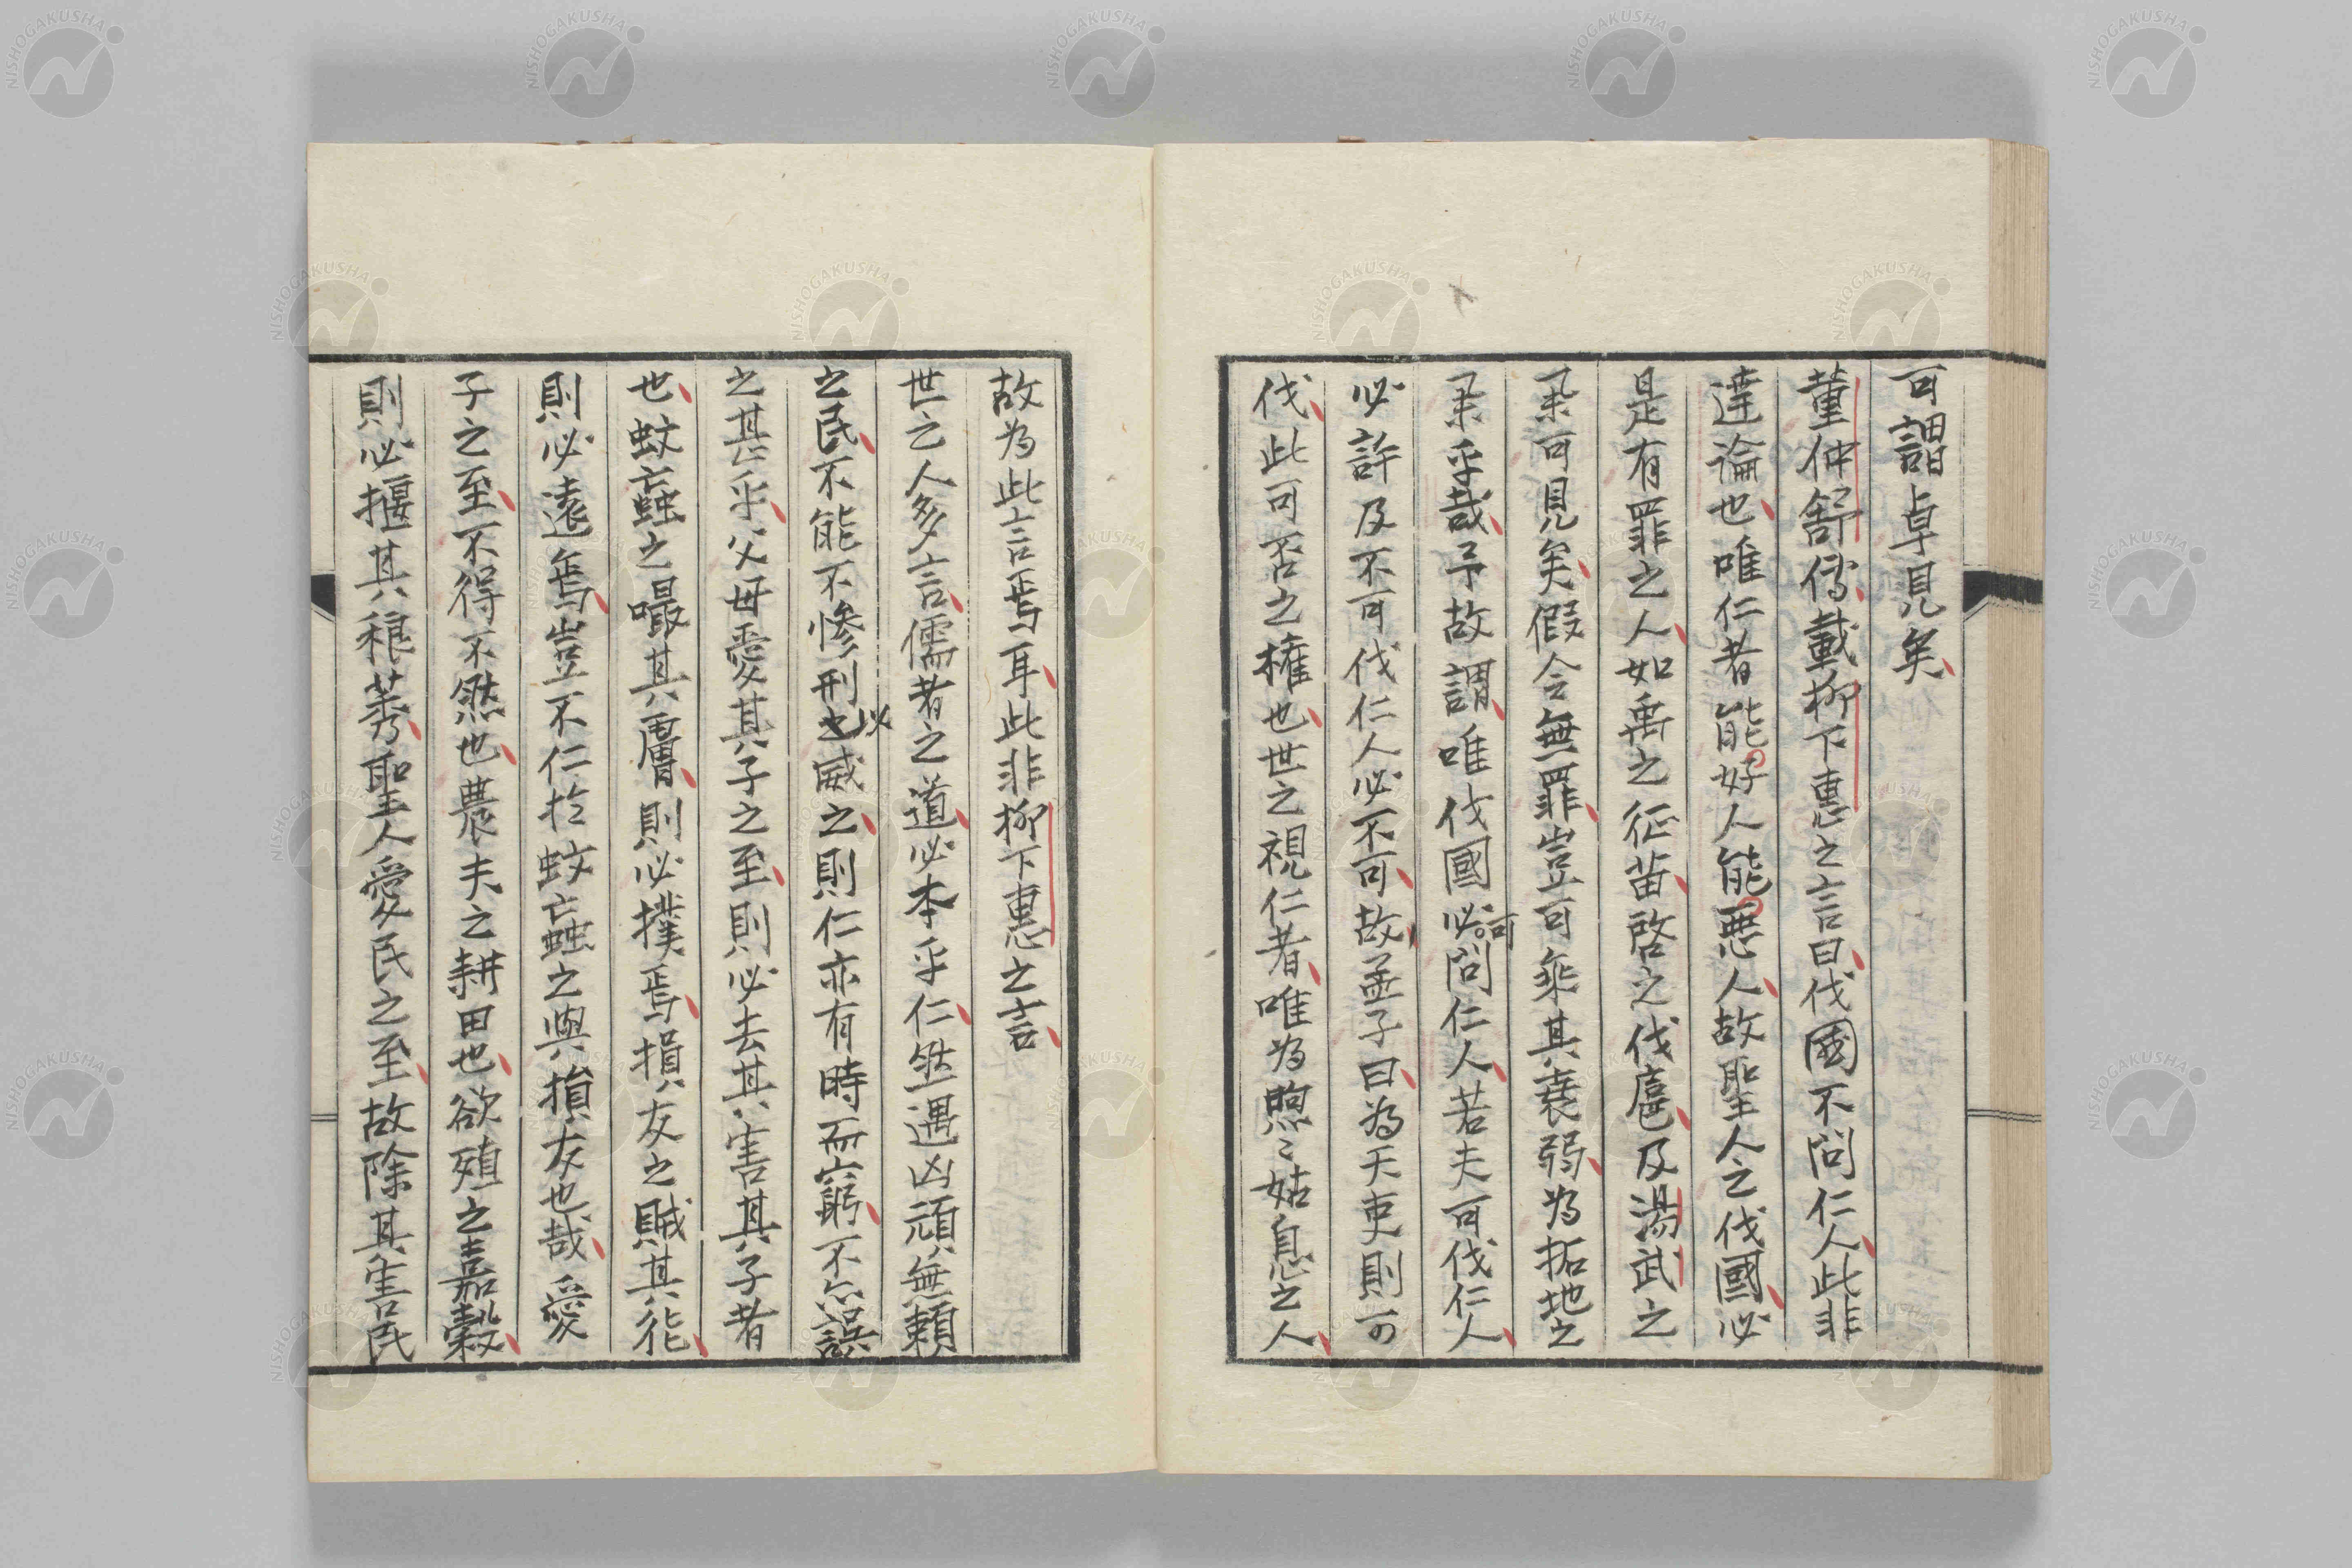 可謂卓見矣
董仲舒傳載柳下惠之言曰伐國不問仁人此非
達論也唯仁者能好人能惡人故聖人之伐國必
是有罪之人如禹之征苗啓之伐扈及湯武之
可見矣假令無罪豈可乘其衰弱為拓地之
乎哉予故謂唯伐國必可問仁人若夫可伐仁人
必許及不可伐仁人必不可故孟子曰為天吏則可
伐此可否之權也世之視仁者唯為煦〻姑息之人
故為此言焉耳此非柳下惠之言
世之人多言儒者之道必本乎仁然遇凶頑無賴
之民不能不慘刑以威之則仁亦有時而窮不亦誤
之甚乎父母愛其子之至則必去其害其子者
也蚊蝱之嘬其膚則必撲焉損友之賊其德
則必遠焉豈不仁於蚊蝱之與損友也哉愛
子之至不得不然也農夫之耕田也欲殖之嘉穀
則必揠其稂莠聖人愛民之至故除其害民
NISHOGAKUSHA